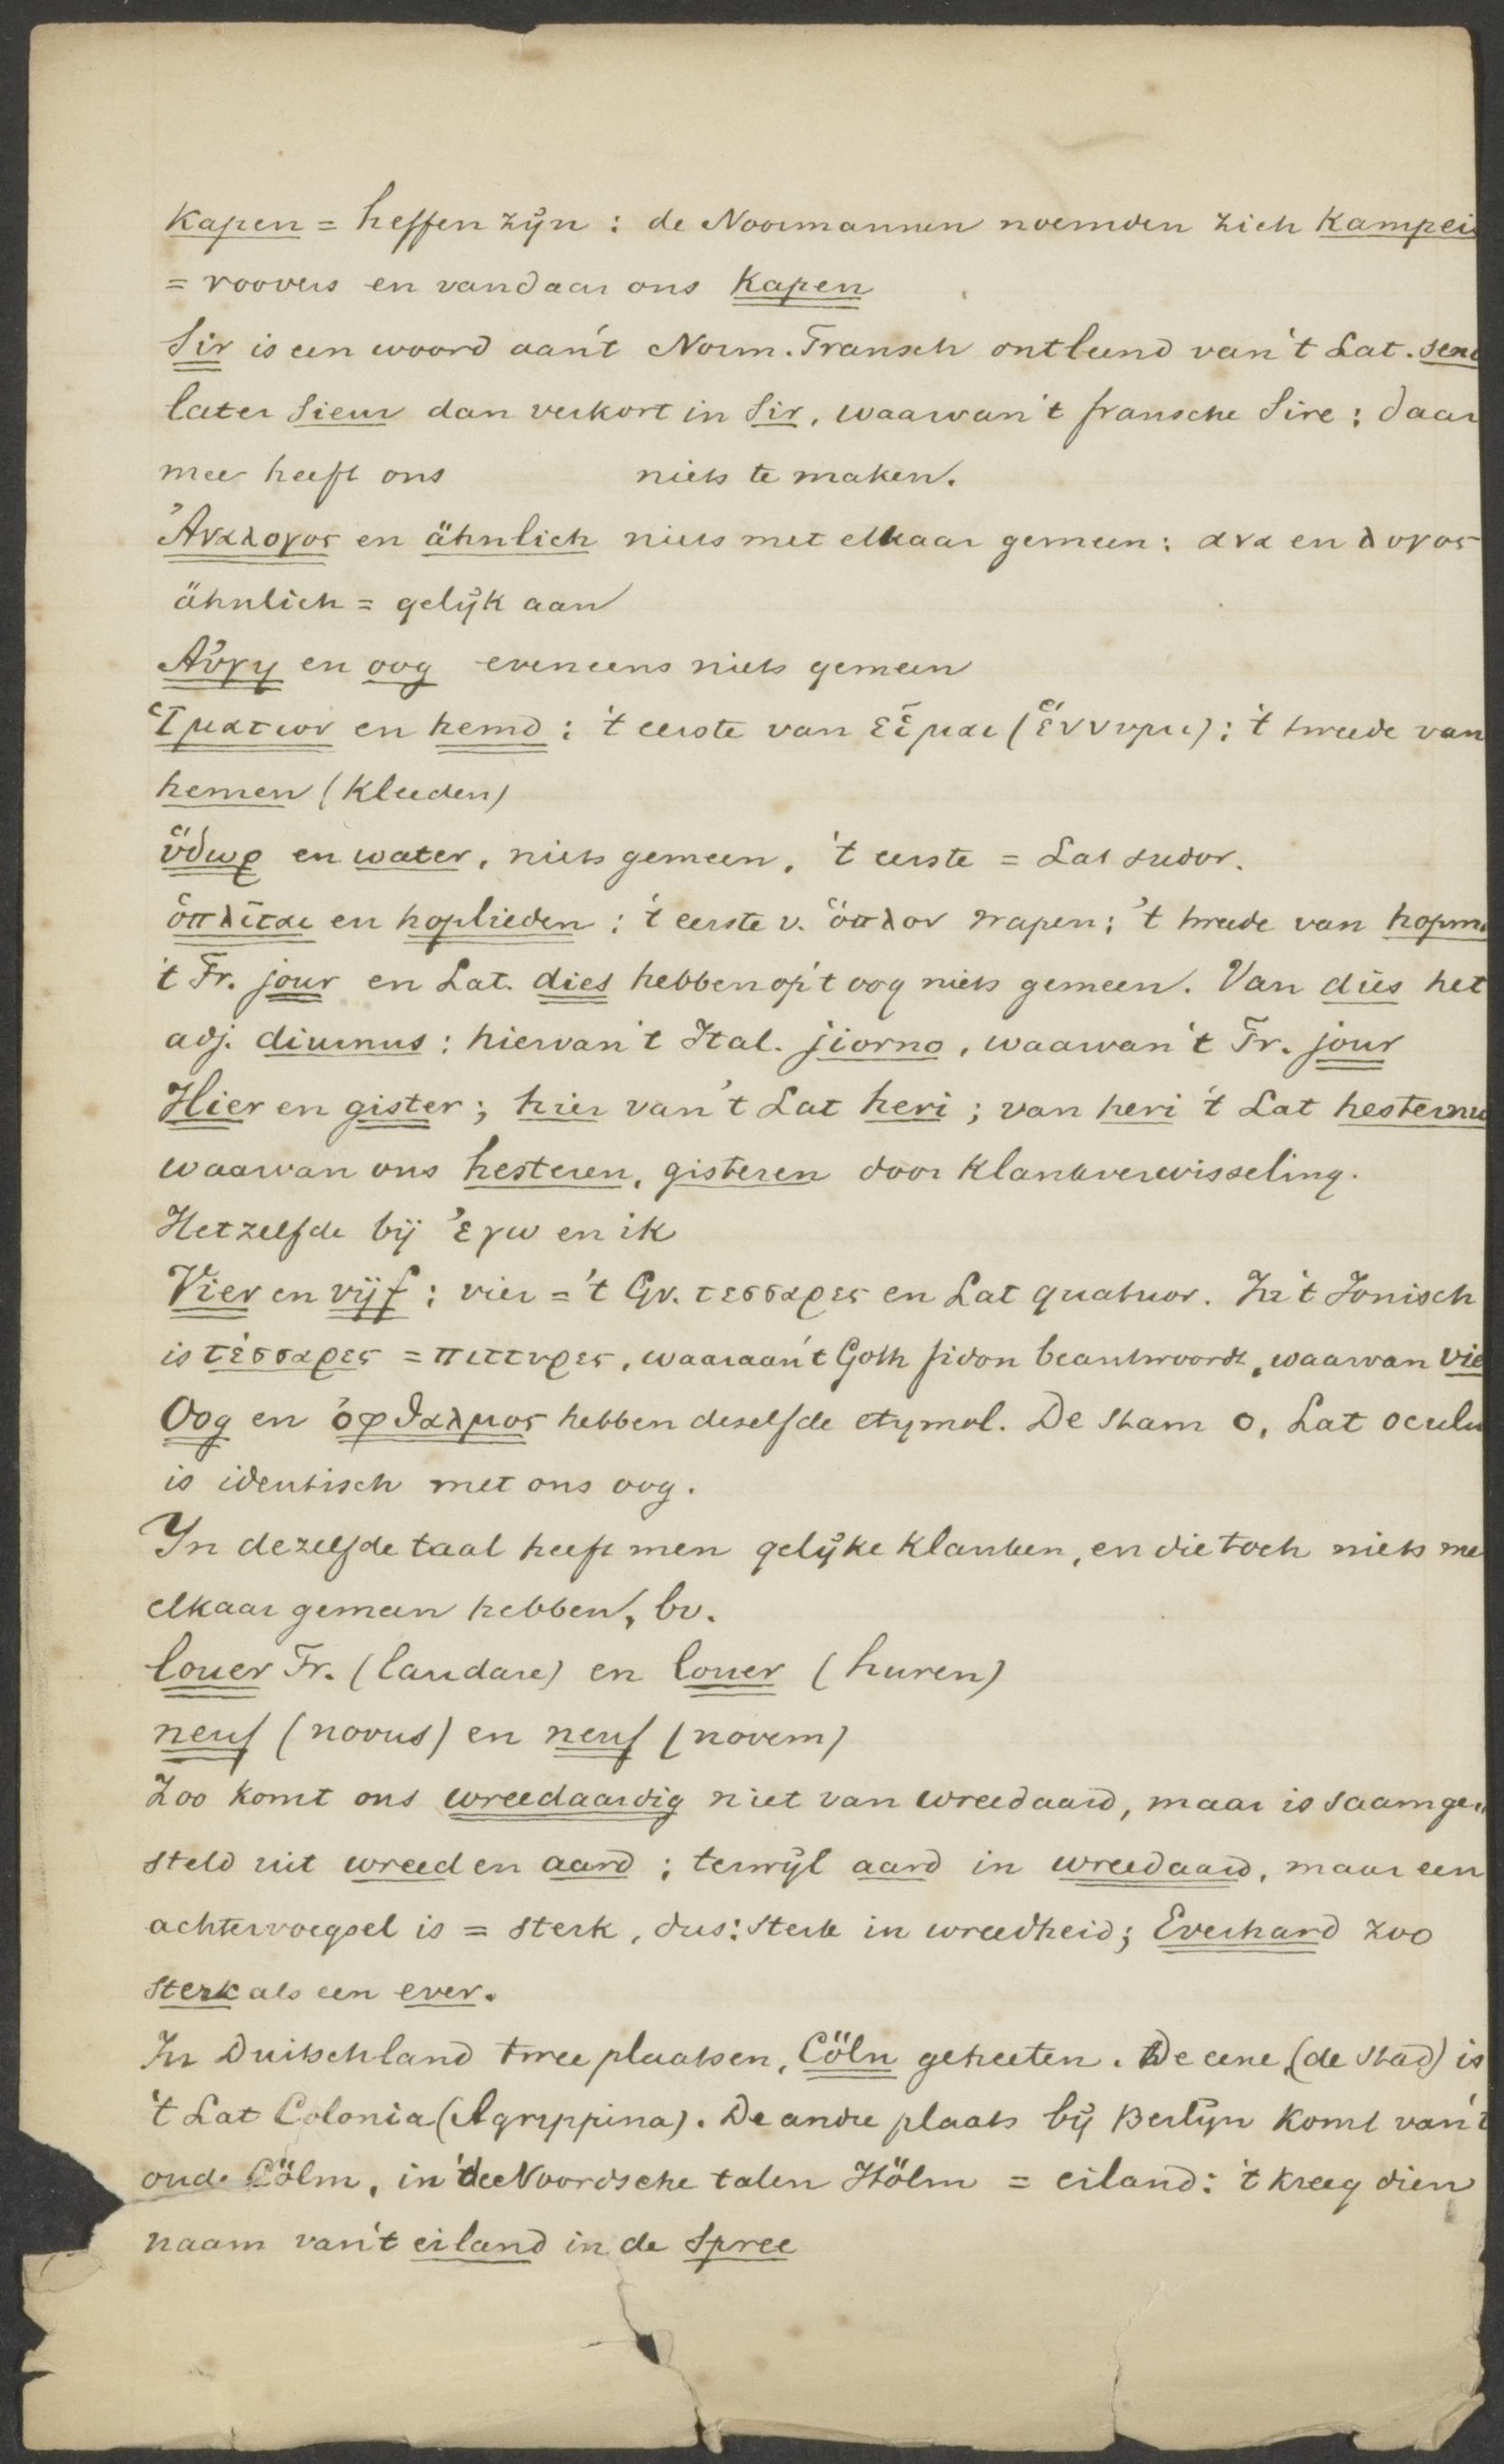 Kapen = heffen zijn : de Noormannen noemden zich Kampei
= roovers en vandaar ons Kapen
Sir is een woord aan't Norm. Fransch ontleend van 't Lat. sen
later Sieur dan verkort in Sir, waarvan 't fransche Sire ; daar
mee heeft ons niets te maken.
Ἀναλογος en ähnlich niets met elkaar gemeen : ανα en λογος
ähnlich = gelijk aan
Αὐγη en oog eveneens niets gemeen
Ἱματιον en hemd : 't eerste van εἷμαι (ἕννυμι) ; 't tweede van
hemen (kleeden)
ὕδωρ en water, niets gemeen, 't eerste = Lat sudor.
ὁπλῖται en hoplieden : 't eerste v. ὅπλον wapen ; 't tweede van hopm
't Fr. jour en Lat. dies hebben op 't oog niets gemeen. Van dies het
adj. diurnus : hiervan 't Ital. jiorno, waarvan 't Fr. jour
Hier en gister ; hier van 't Lat heri ; van heri 't Lat hesternu
waarvan ons hesteren, gisteren door klankverwisseling.
Hetzelfde bij ἐγω en ik
Vier en vijf : vier = 't Gr. τεσσαρες en Lat quatuor. In 't Jonisch
is τέσσαρες = πιττυρες, waaraan 't Goth fidon beantwoordt, waarvan vie
Oog en ὀφθαλμος hebben deselfde etymol. De stam o, Lat oculu
is identisch met ons oog.
In dezelfde taal heeft men gelijke klanken, en die toch niets me
elkaar gemeen hebben, bv.
louer Fr. (laudare) en louer (huren)
neuf (novus) en neuf (novem)
Zoo komt ons wreedaardig niet van wreedaard, maar is saamge"
steld uit wreed en aard ; terwijl aard in wreedaard, maar een
achtervoegsel is = sterk, dus: sterk in wreedheid ; Everhard zoo
sterk als een ever.
In Duitschland twee plaatsen, Cöln geheeten. De eene, (de stad) is
't Lat Colonia (Agryppina). De andre plaats bij Berlijn komt van 't
oude Cölm, in de Noordsche talen Hölm = eiland : 't kreeg dien
naam van 't eiland in de Spree